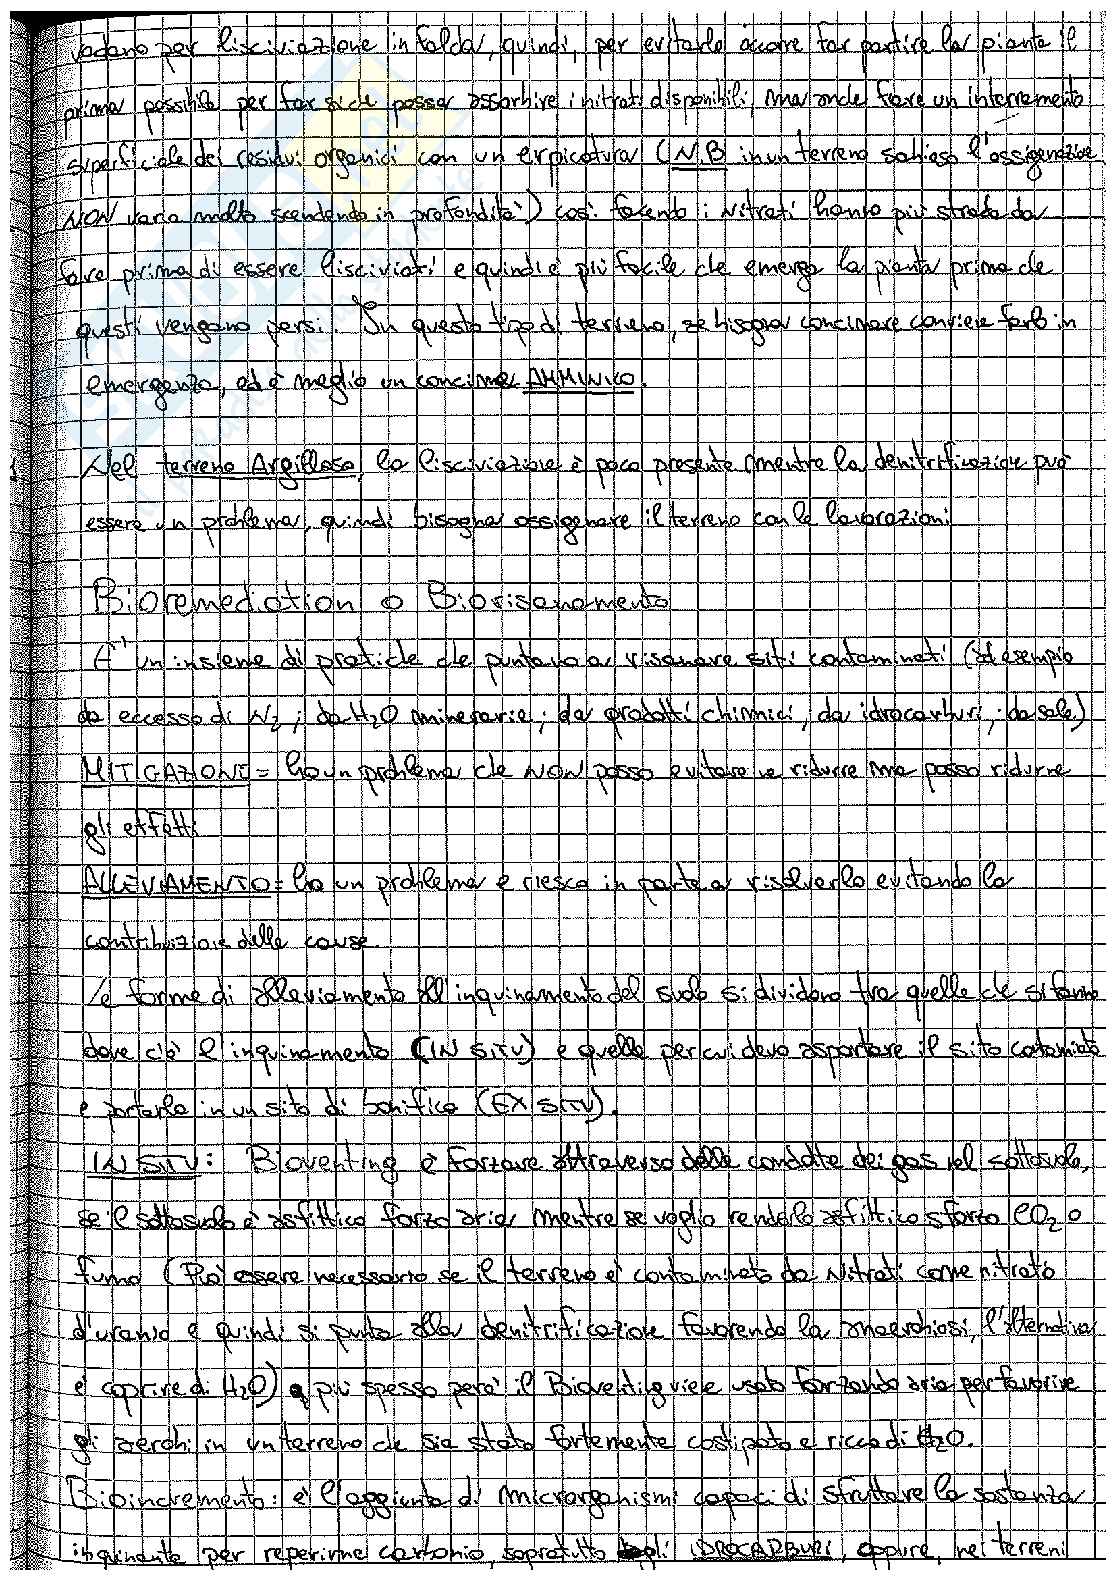 vadano per lisciviazione in falda, quindi, per evitarlo occorre far partire la pianta il
prima possibile per far si che possa assorbire i nitrati disponibili, ma anche fare un interramento
superficiale dei residui organici con un erpicatura (N.B in un terreno sabbioso l'ossigenazione
NON varia molto scendendo in profondità) così facendo i Nitrati hanno più strada da
fare prima di essere lisciviati e quindi è più facile che emerga la pianta prima che
questi vengano persi. In questo tipo di terreno, se bisogna concimare conviene farlo in
emergenza, ed è meglio un concime AMMINICO.
Nel terreno Argilloso, la lisciviazione è poco presente mentre la denitrificazione può
essere un problema, quindi bisogna ossigenare il terreno con le lavorazioni
Bioremediation o Biorisanamento
E' un insieme di pratiche che puntano a risanare siti contaminati (ad esempio
da eccesso di N2; da H2O minerarie; da prodotti chimici, da idrocarburi; da sale)
MITIGAZIONE = ho un problema che NON posso evitare ne ridurre ma posso ridurne
gli effetti
ALLEVIAMENTO = ho un problema e riesco in parte a risolverlo evitando la
contribuzione delle cause.
Le forme di alleviamento all'inquinamento del suolo si dividono tra quelle che si fanno
dove c'è l'inquinamento (IN SITU) e quelle per cui devo asportare il sito contaminato
e portarlo in un sito di bonifica (EX SITU).
IN SITU: Bioventing è forzare attraverso delle condotte dei gas nel sottosuolo,
se il sottosuolo è asfittico forzo aria, mentre se voglio renderlo asfittico sforzo CO2 o
fumo (Può essere necessario se il terreno è contaminato da Nitrati come nitrato
d'uranio e quindi si punta alla denitrificazione favorendo la anaerobiosi, l'alternativa
è coprire di H2O) più spesso però il Bioventing viene usato forzando aria per favorire
gli aerobi in un terreno che sia stato fortemente costipato e ricco di H2O.
Bioincremento: è l'aggiunta di microrganismi capaci di sfruttare la sostanza
inquinante per reperirne carbonio, sopratutto degli IDROCARBURI, oppure, nei terreni